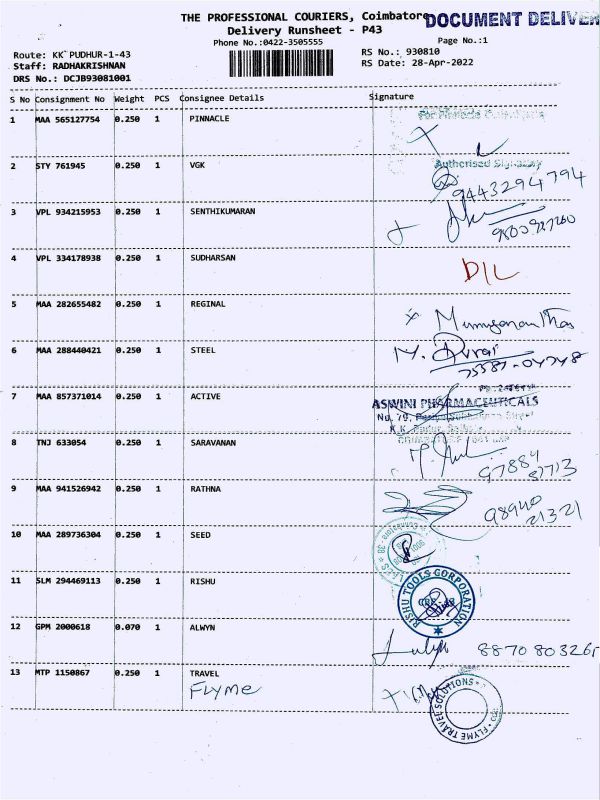 THE PROFESSIONAL COURIERS, Coimbatore
DOCUMENT DELIVER
Delivery Runsheet - P43
Phone No.:0422-3505555
Page No.:1
Route: KK PUDHUR-1-43
RS No.: 930810
Staff: RADHAKRISHNAN
RS Date: 28-Apr-2022
DRS No.: DCJB93081001
S No Consignment No Weight PCS Consignee Details Signature
1 MAA 565127754 0.250 1 PINNACLE
Authorised Signatory
2 STY 761945 0.250 1 VGK
9443294794
3 VPL 934215953 0.250 1 SENTHIKUMARAN
4 VPL 334178938 0.250 1 SUDHARSAN
D/L
5 MAA 282655482 0.250 1 REGINAL
6 MAA 288440421 0.250 1 STEEL
M. Durai
75587-04748
7 MAA 857371014 0.250 1 ACTIVE
ASWINI PHARMACEUTICALS
8 TNJ 633054 0.250 1 SARAVANAN
97884
9 MAA 941526942 0.250 1 RATHNA
98940
21321
10 MAA 289736304 0.250 1 SEED
11 SLM 294469113 0.250 1 RISHU
RISHU TOOLS CORPORATION
12 GPM 2000618 0.070 1 ALWYN
13 MTP 1150867 0.250 1 TRAVEL
Flyme
FLYME TRAVEL SOLUTIONS